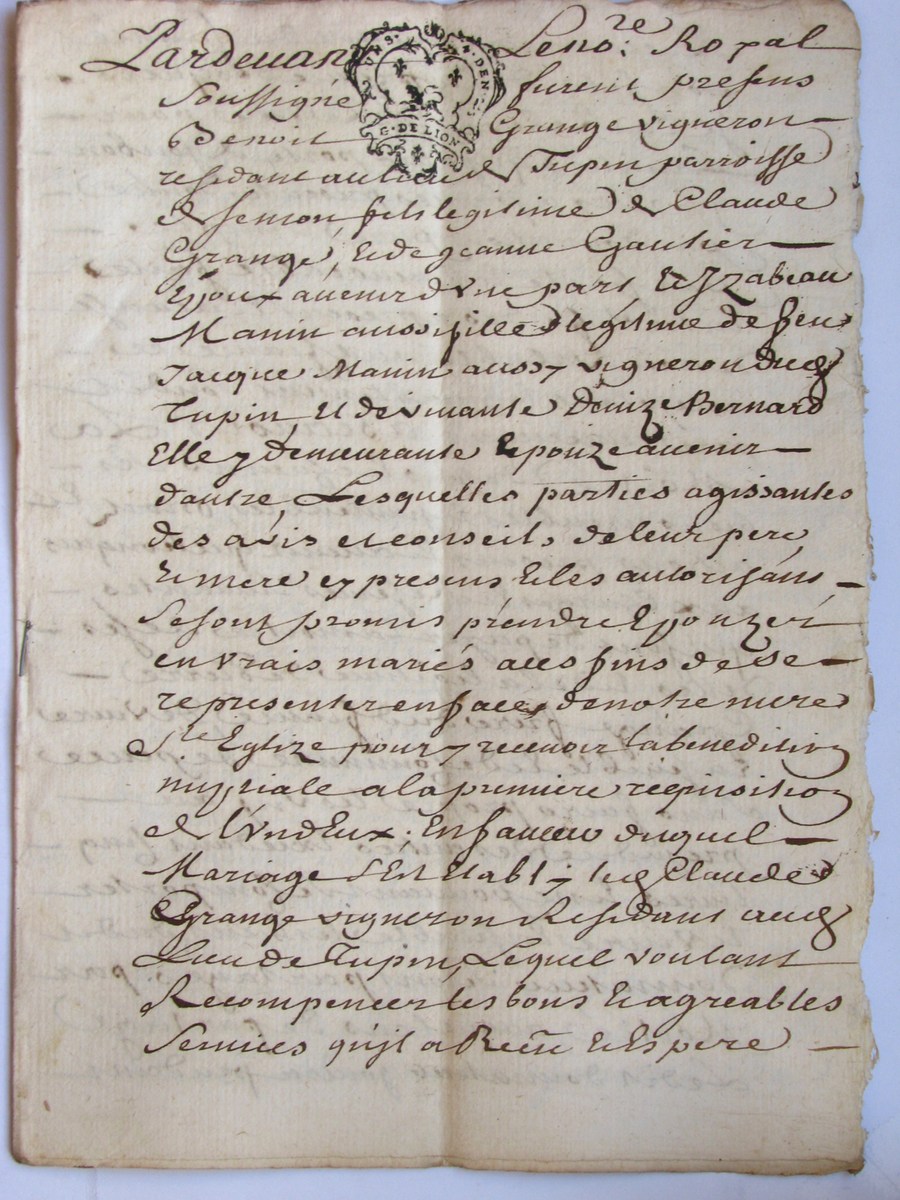 Pardevant Leno:re Royal
Soussigné furent presens
Benoit Grange vigneron
residant au lieu de Tupin parroisse
de semon fils legitime de Claude
Grange, et de jeanne Gautier
Epoux avenir d'vne part, et Jzabeau
Manin aussi fille legitime de feu
Jacque Manin aussy vigneron dud
Tupin, et de vivante Denize Bernard
Elle y demeurante Epouze avenir
dautre, Lesquelles parties agissantes
des avis et conseils de leur pere
et mere cy presens et les autorisans
se sont promis prendre et Epouzer
en vrais mariés a ces fins de se
representer en face de notre mere
Ste Eglize pour y recevoir la benedition
nuptiale a la premiere requisition
de l'vn d'Eux; En faveur duquel
Mariage s'Est Etably led Claude
Grange vigneron Residant aud
Lieu de Tupin, Lequel voulant
Recompencer les bons et agreables
Services qu'jl a Receu et Espere
G. DE LION